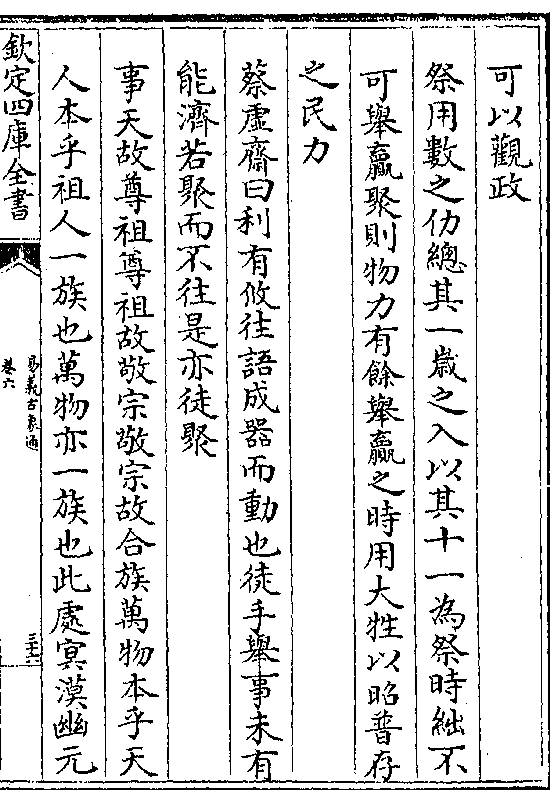 可以觀政
祭用數之仂總其一歲之入以其十一為祭時絀不
可舉贏聚則物力有餘舉贏之時用大牲以昭普存
之民力
蔡虛齋曰利有攸往語成器而動也徒手舉事未有
能濟若聚而不往是亦徒聚
事天故尊祖尊祖故敬宗敬宗故合族萬物本乎天
人本乎祖人一族也萬物亦一族也此處㝠漠幽元
欽定四庫全書
易義古象通
卷六
三十六